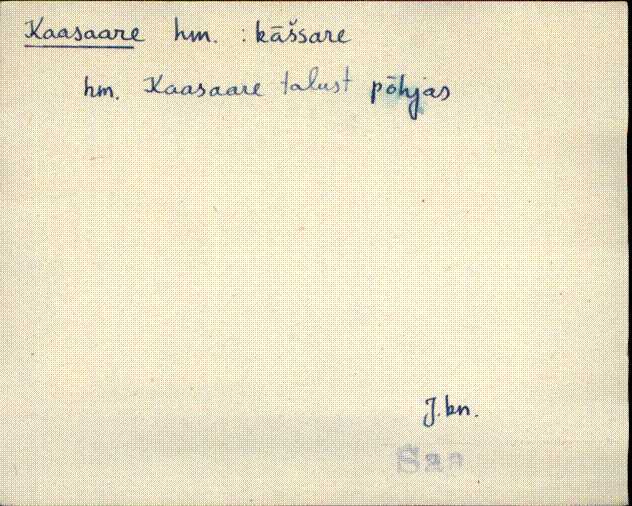 Kaasaare hm. : kāšsare
hm. Kaasaare talust põhjas
J.kn.
Saa